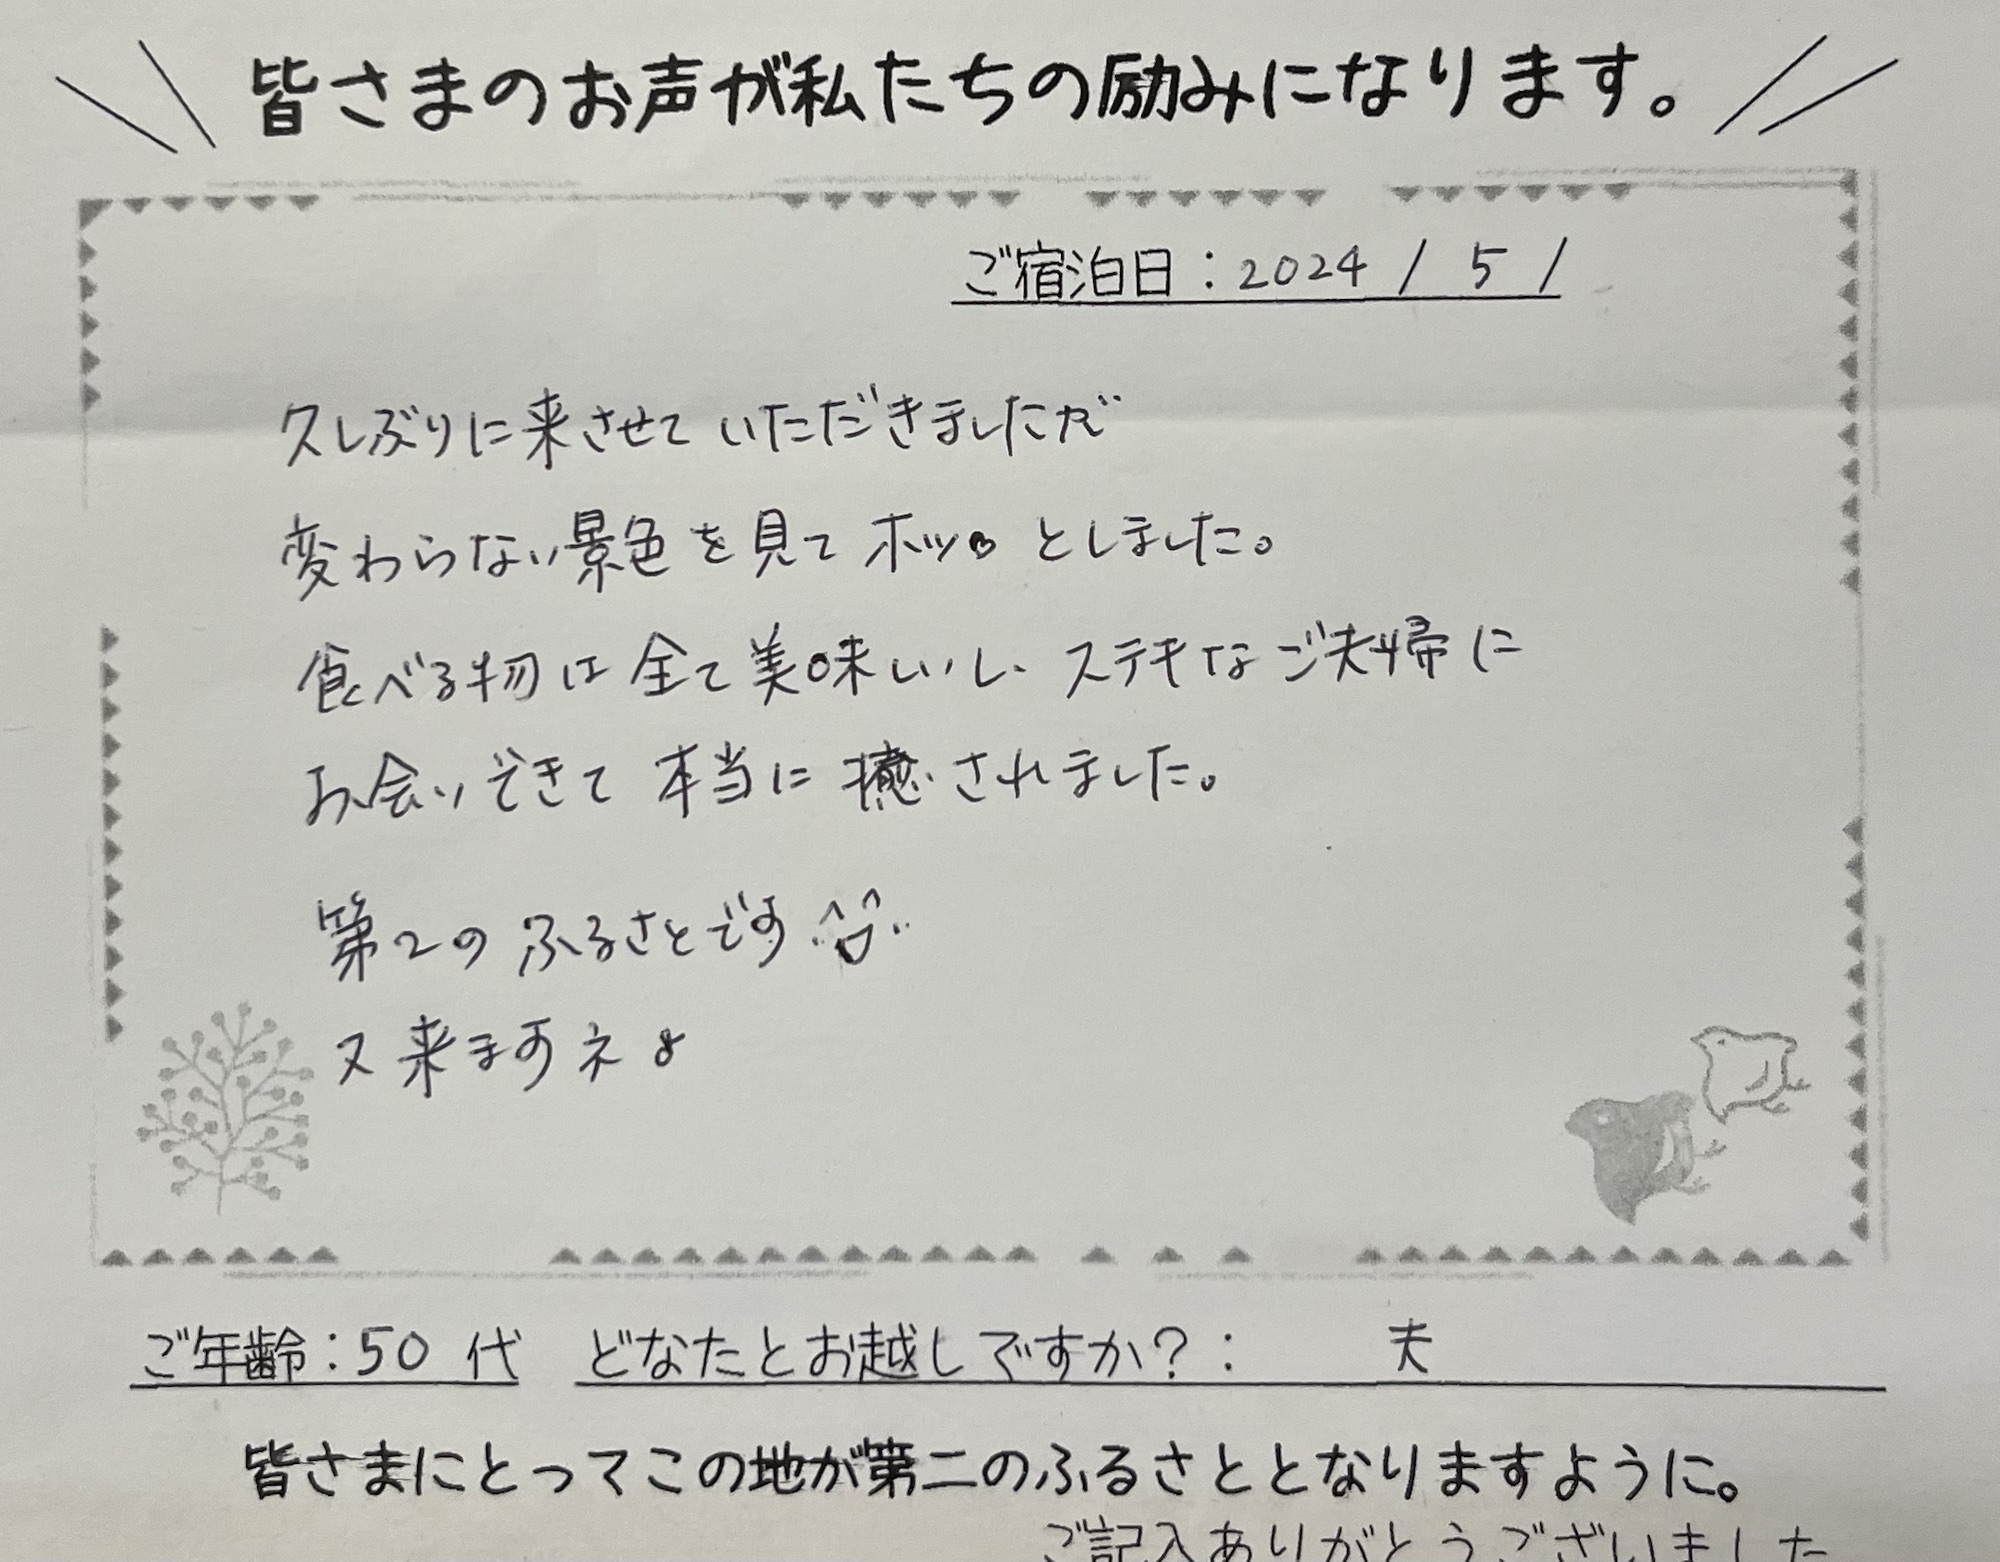 皆さまのお声が私たちの励みになります。
ご宿泊日：2024 / 5 /
久しぶりに来させていただきましたが
変わらない景色を見てホッとしました。
食べる物は全て美味しいし、ステキなご夫婦に
お会いできて本当に癒されました。
第2のふるさとです
又来ますネ
ご年齢：50代 どなたとお越しですか？： 夫
皆さまにとってこの地が第二のふるさととなりますように。
ご記入ありがとうございました